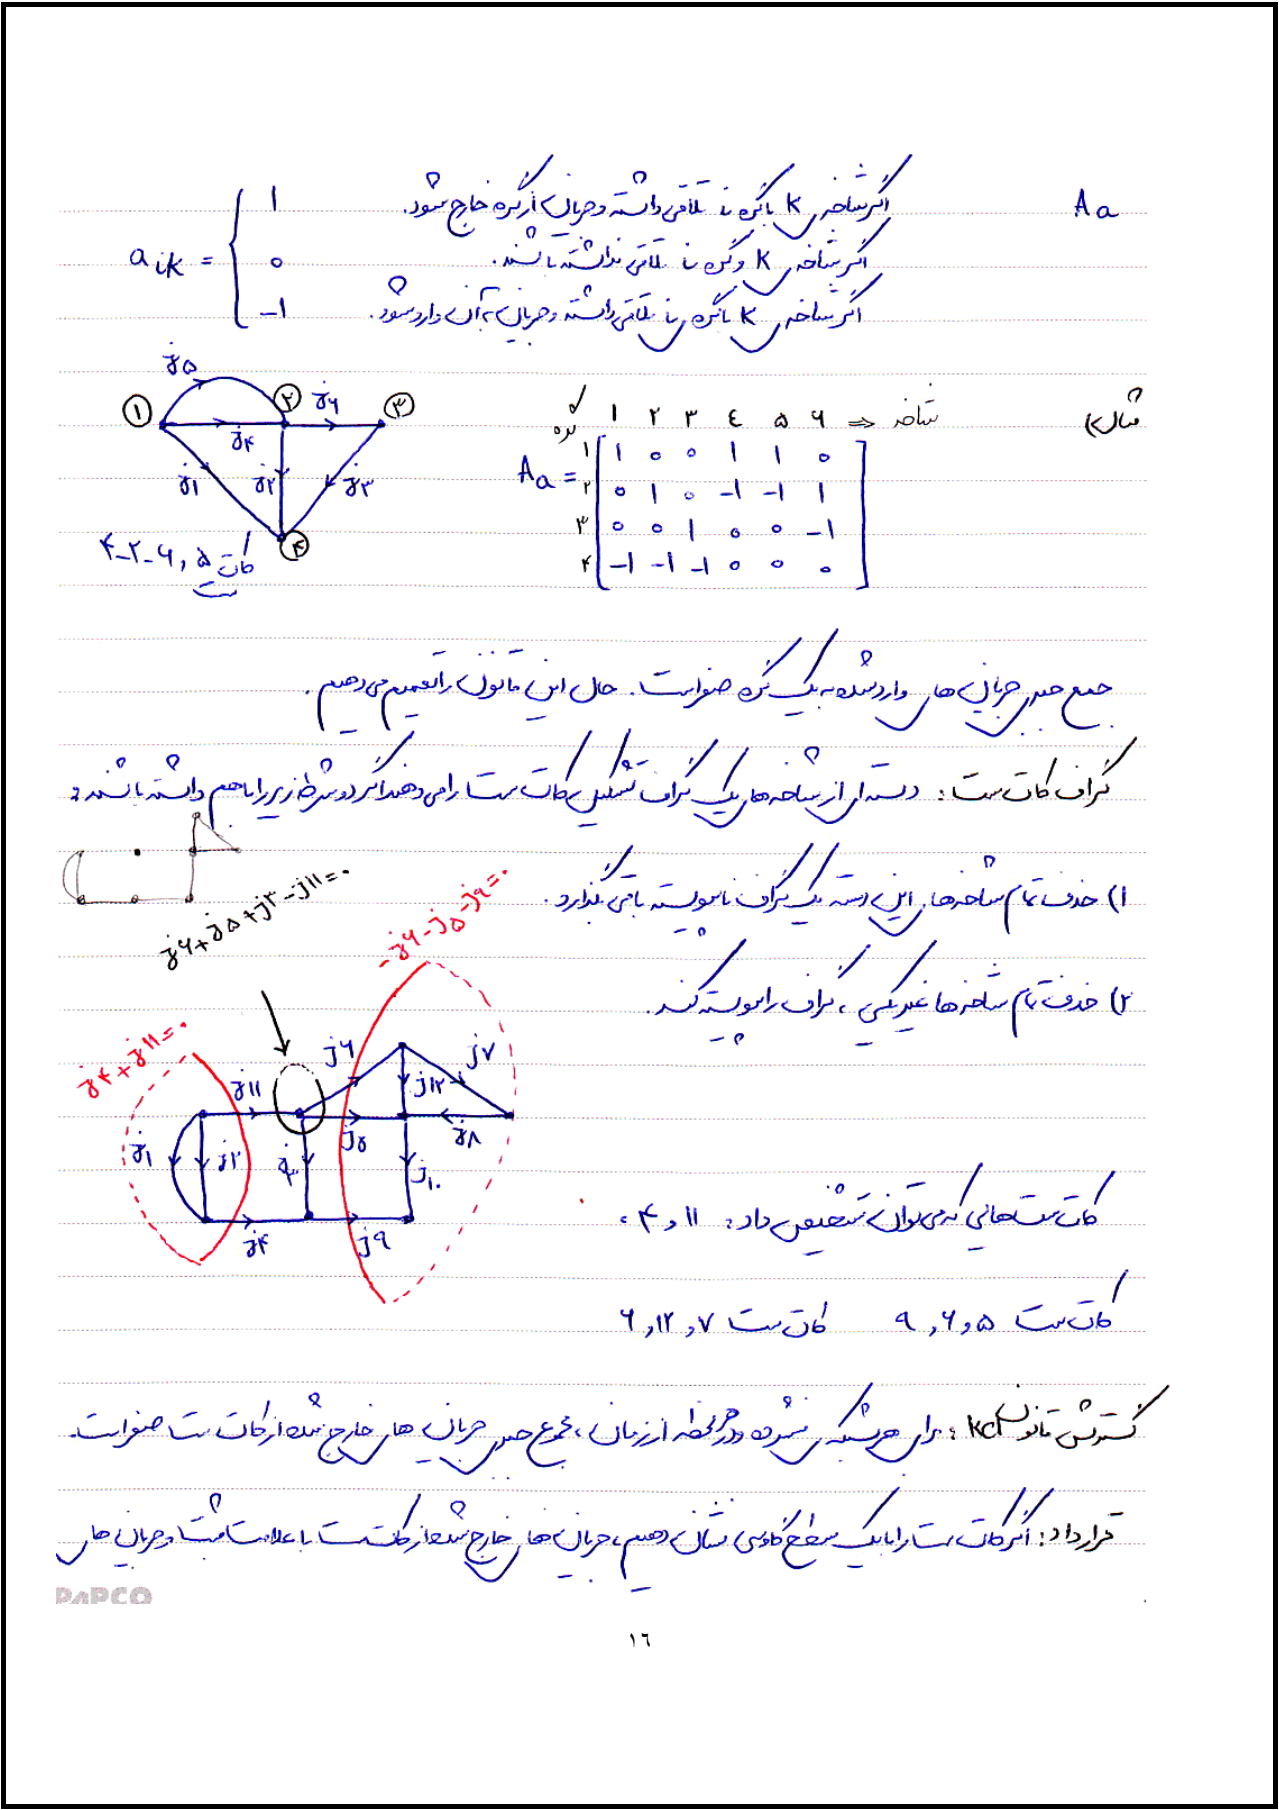 Aa
aik =
1 اگر شاخه‌ی k با گره i تلاقی داشته و جریان از گره خارج شود.
0 اگر شاخه‌ی k و گره i تلاقی نداشته باشند.
-1 اگر شاخه‌ی k با گره‌ی i تلاقی داشته و جریان به آن وارد شود.
مثال)
شاخه ⇒ 1 2 3 4 5 6
گره
Aa =
1 1 0 0 1 1 0
2 0 1 0 -1 -1 1
3 0 0 1 0 0 -1
4 -1 -1 -1 0 0 0
j5
1 2 j6 3
j4
j1 j2 j3
4
کات ست 5 و 6-2-4
جمع جبری جریان های وارد شده به یک گره صفر است. حال این قانون را تعمیم می دهیم.
گراف کات ست: دسته ای از شاخه های یک گراف تشکیل کات ست را می دهند اگر دو شرط زیر را با هم داشته باشند:
1) حذف تمام شاخه های این دسته یک گراف ناپیوسته باقی بگذارد.
2) حذف تمام شاخه ها غیر یکی، گراف را پیوسته کند.
j6+j5+j3-j11=0
-j6-j5-j9=0
j4+j11=0
j11 j6 j12 j7
j1 j2 j3 j5 j8
j10
j4 j9
کات ست هایی که می توان تشخیص داد: 11 و 4،
کات ست 5 و 6 و 9 کات ست 7 و 12 و 6
گسترش قانون kcl: برای هر شبکه‌ی فشرده و در هر لحظه از زمان، مجموع جبری جریان های خارج شده از کات ست صفر است.
قرارداد: اگر کات ست را با یک سطح گاوسی نشان دهیم، جریان های خارج شده از کات ست با علامت مثبت و جریان های
PAPCO
١٦